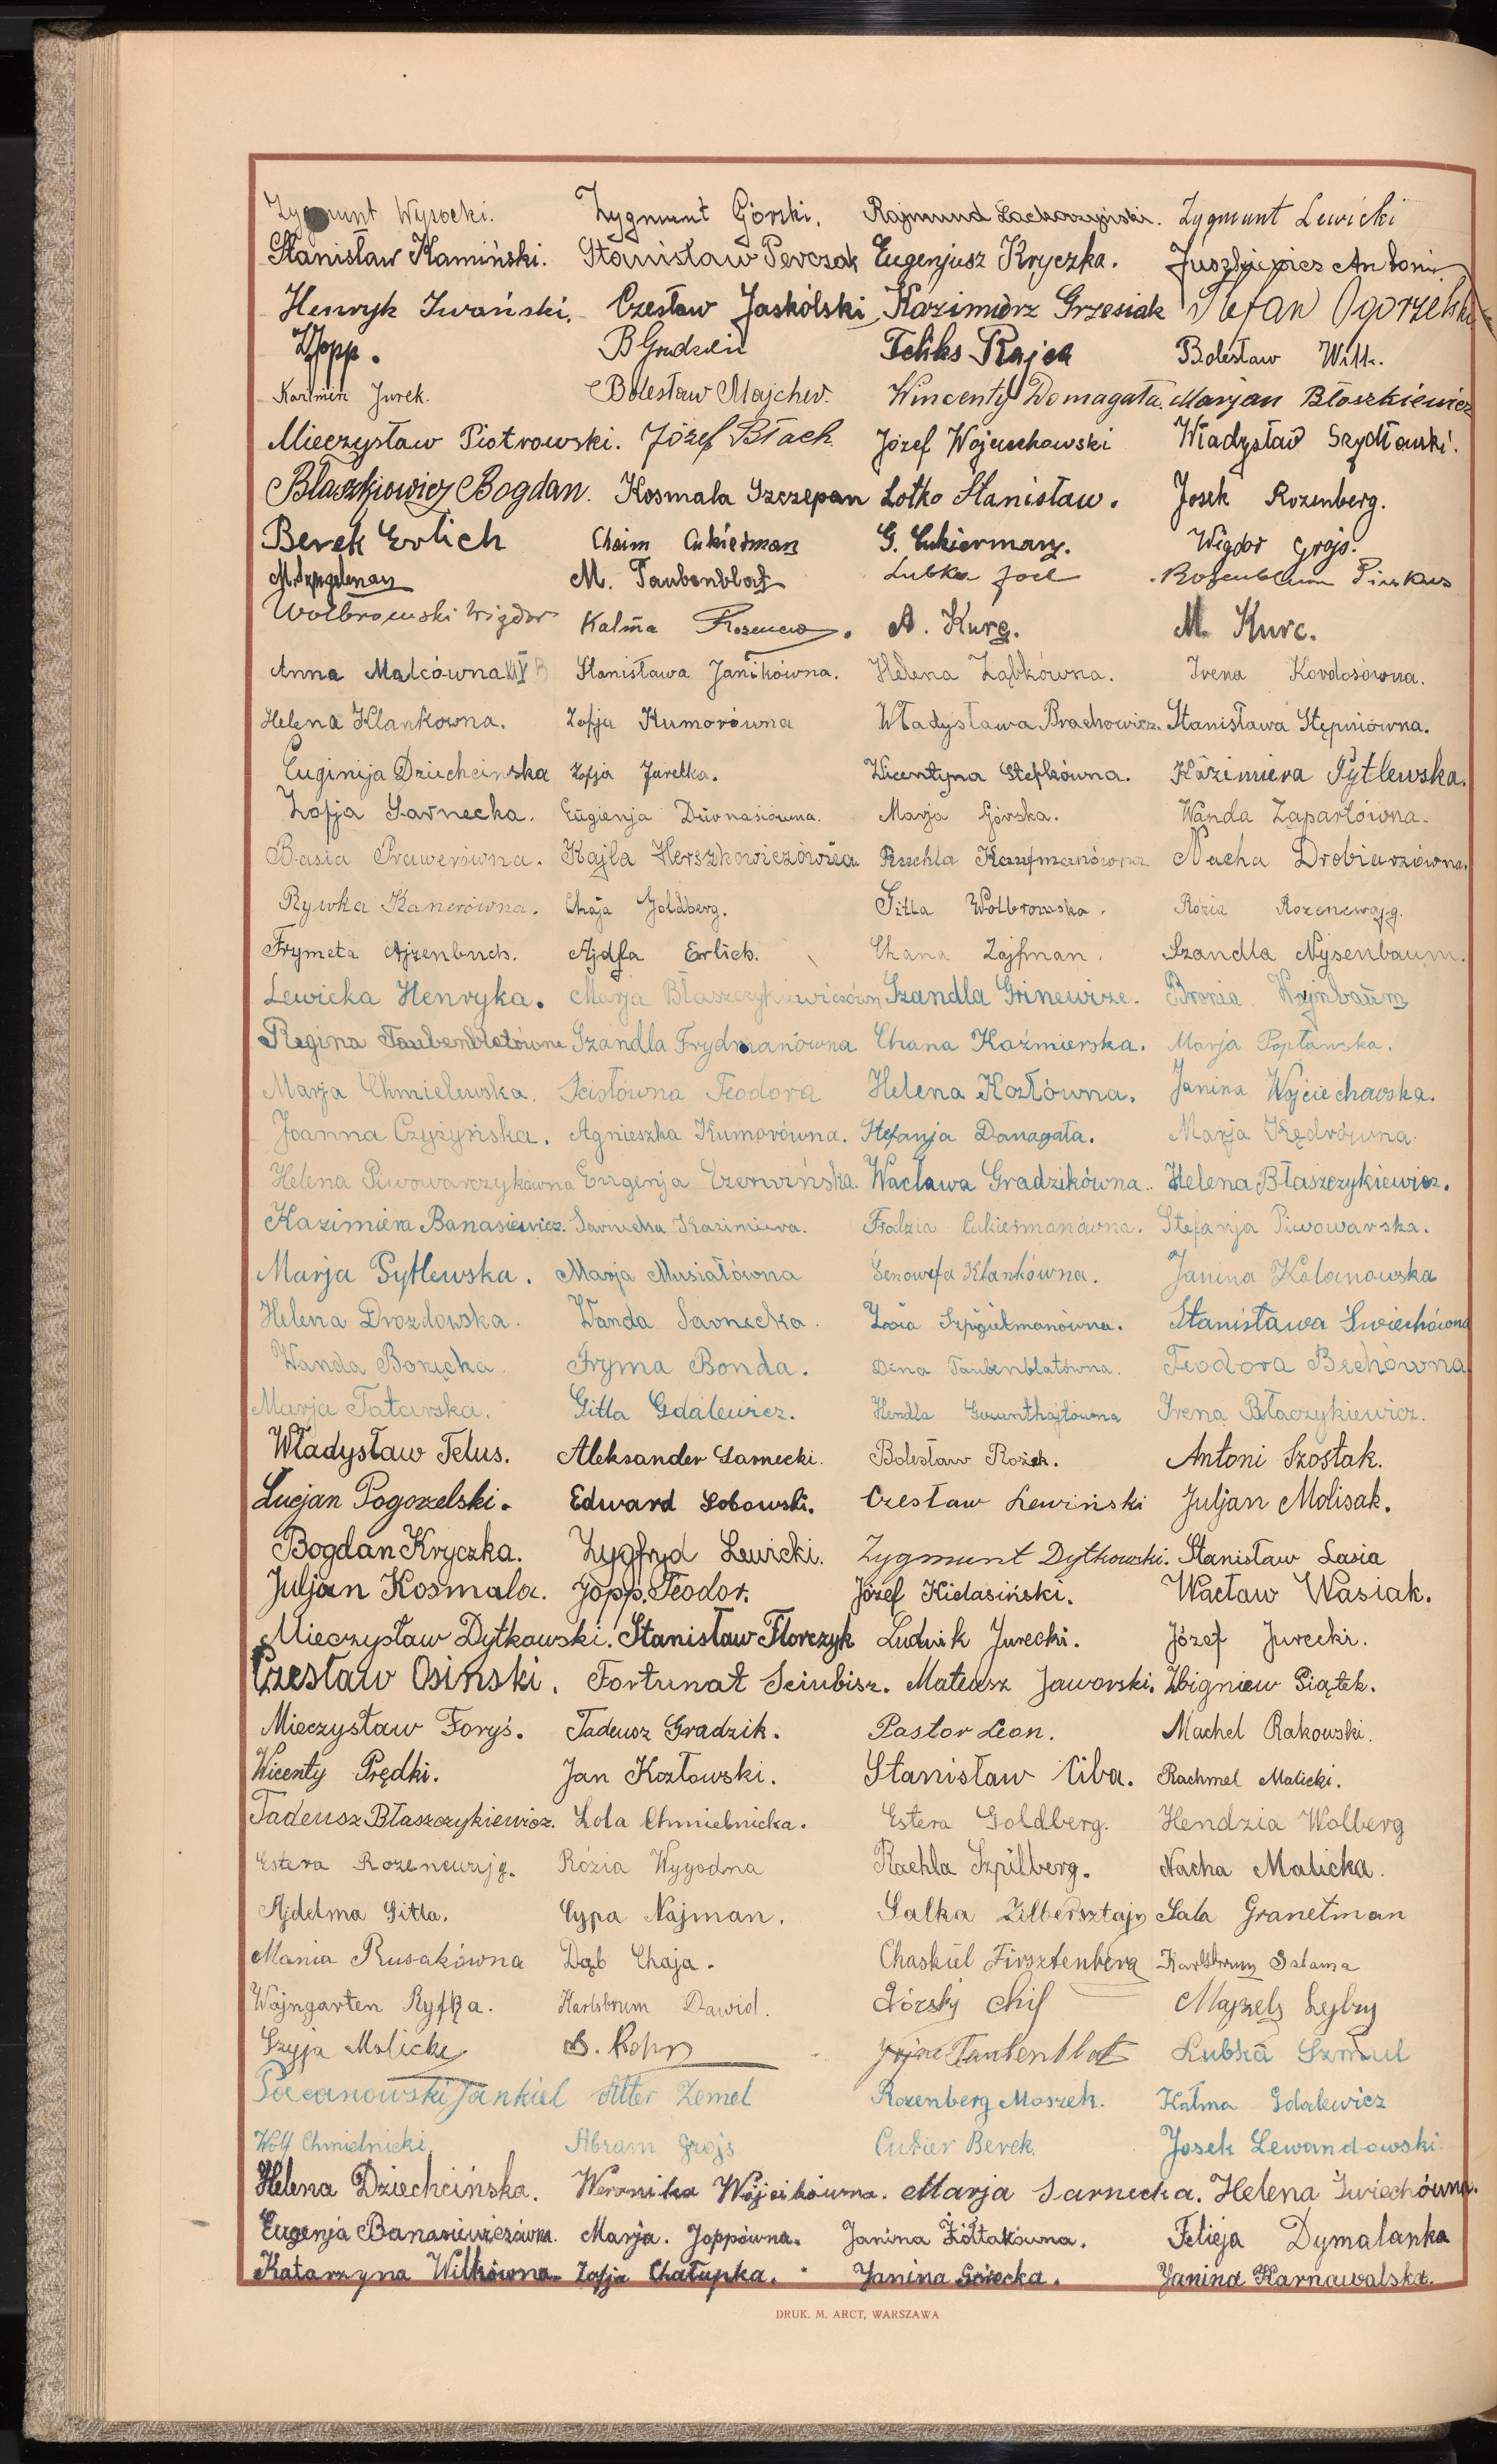 Zygmunt Wysocki. Zygmunt Górski. Rajmund Lachorzyński. Zygmunt Lewicki
Stanisław Kamiński. Stanisław Perczak Eugenjusz Kryczka. Juszkiewicz Antoni
Henryk Iwański. Czesław Jaskólski Kazimierz Grzesiak Stefan Ogorzelski
Jopp. B Grudzień Feliks Rajca Bolesław Wilk.
Kazimierz Jurek. Bolesław Majcher. Wincenty Domagała. Marjan Błoszkiewicz
Mieczysław Piotrowski. Józef Błach. Józef Wojciechowski Władysław Szydłowski.
Błaszkiewicz Bogdan. Kosmala Szczepan Lotko Stanisław. Josek Rozenberg.
Berek Erlich Chaim Cukierman G. Cukierman. Wigdor Grojs.
M. Szpigelman M. Taubenblat Lubka Joel Rosenblum Pinkus
Wolbromski Wigdor Kalma A. Kurc. M. Kurc.
Anna Malcówna VII B Stanisława Janikówna. Helena Ząbkówna. Irena Kordosówna.
Helena Klankowna. Zofja Kumorówna Władysława Brachowicz. Stanisława Stępniówna.
Euginija Dziechcinska Zofja Jurelka. Wicentyna Stefkówna. Kazimiera Pytlewska.
Zofja Sarnecka. Eugienja Durnasiowna. Marja Górska. Wanda Zaparłówna.
Basia Prawerówna. Kajla Herszkowiczówna. Ruchla Kaufmanówna Nacha Drobiarzówna.
Rywka Kanerówna. Chaja Goldberg. Gitla Wolbromska. Rózia Rozencwajg.
Frymeta Ajzenbuch. Ajdla Erlich. Chana Zajfman. Szandla Nysenbaum.
Lewicka Henryka. Marja Błaszczykiewiczówn Szandla Grinewize. Bronia Wajnbaum
Regina Taubenblatówna Szandla Frydmanówna. Chana Kaźmierska. Marja Popławska.
Marja Chmielewska. Scisłówna Teodora Helena Kozłówna. Janina Wojciechowska.
Joanna Czyżyńska. Agnieszka Kumorówna. Stefanja Danagała. Marja Kędrówna.
Helena Piwowarczykówna Eugenja Czerwińska. Wacława Gradzikówna. Helena Błaszczykiewicz.
Kazimiera Banasiewicz. Sarnecka Kazimiera. Frodzia Cukiermanówna. Stefanja Piwowarska.
Marja Pytlewska. Marja Musiałówna Genowefa Klankówna. Janina Kolanowska
Helena Drozdowska. Wanda Sarnecka. Zosia Szpigielmanówna. Stanisława Świechówna
Wanda Borucka. Fryma Bonda. Dena Taubenblatówna. Teodora Bechówna.
Marja Tatarska. Gitla Gdalewicz. Hendla Gwunthajtówna Irena Błaczykiewicz.
Władysław Telus. Aleksander Sarnecki. Bolesław Rożek. Antoni Szostak.
Lucjan Pogorzelski. Edward Sobowski. Czesław Lewiński Juljan Molisak.
Bogdan Kryczka. Zygfryd Lewicki. Zygmunt Dytkowski. Stanisław Lasia
Juljan Kosmala. Jopp. Teodor. Józef Kidasiński. Wacław Wasiak.
Mieczysław Dytkowski. Stanisław Florczyk Ludwik Jurecki. Józef Jurecki.
Czesław Osiński. Fortunat Sciubisz. Mateusz Jaworski. Zbigniew Piątek.
Mieczysław Foryś. Tadeusz Gradzik. Pastor Leon. Machel Rakowski.
Wicenty Prędki. Jan Kozłowski. Stanisław Ciba. Rachmel Malicki.
Tadeusz Błaszczykiewicz. Lola Chmielnicka. Estera Goldberg. Hendzia Wolberg
Estera Rozencwajg. Rózia Wygodna Rachla Szpilberg. Nacha Malicka.
Ajdelma Gitla. Cypa Najman. Salka Zilbersztajn Sala Granetman
Mania Rusakówna Dąb Chaja. Chaskiel Firsztenberg Karlsbrum Salama
Wajngarten Ryfka. Karlsbrum Dawid. Górski Chil Majzels Lejbzy
Szyja Malicki S. Kohn Jojne Taubenblat Lubka Szmul
Pacanowski Jankiel Alter Zemel Rozenberg Moszek. Kalma Gdalewicz
Wolf Chmielnicki Abram Grojs Cukier Berek. Josek Lewandowski.
Helena Dziechcińska. Weronika Wójcikówna. Marja Sarnecka. Helena Świechówna.
Eugenja Banasiewiczówna. Marja. Joppówna. Janina Żółtakówna. Felicja Dymalanka
Katarzyna Wilkówna. Zofja Chałupka. Janina Gósecka. Janina Karnawalska.
DRUK. M. ARCT, WARSZAWA